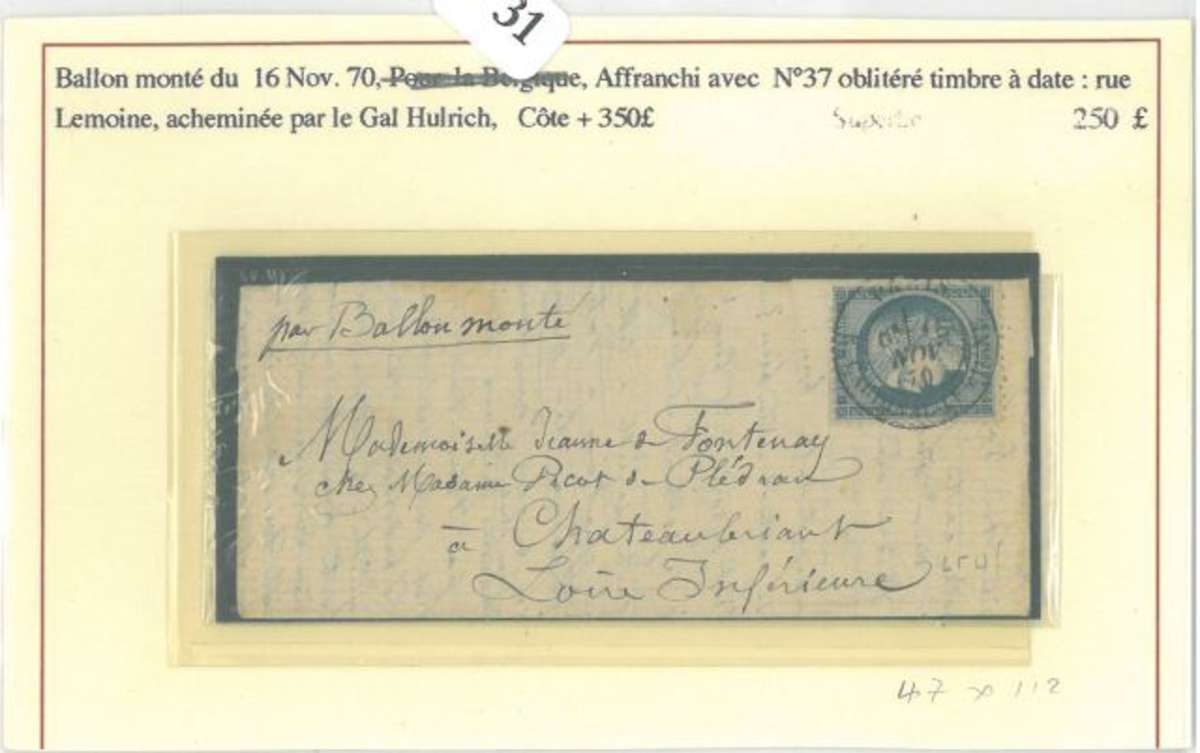 31
Ballon monté du 16 Nov. 70, Pour la Belgique, Affranchi avec N°37 oblitéré timbre à date : rue
Lemoine, acheminée par le Gal Hulrich, Côte + 350£
250 £
par Ballon monté
PARIS
NOV.
Mademoiselle Jeanne de Fontenay
chez Madame Picot de Plédran
à Chateaubriant
Loire Inférieure
47 x 112